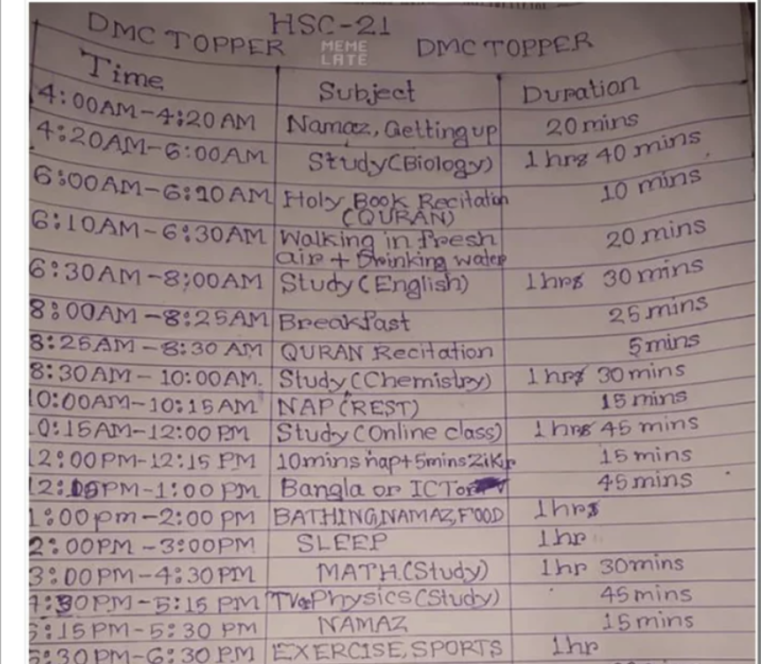 HSC-21
DMC TOPPER MEME LATE DMC TOPPER
Time Subject Duration
4:00AM-4:20AM Namaz, Getting up 20 mins
4:20AM-6:00AM Study(Biology) 1 hrs 40 mins
6:00AM-6:10AM Holy Book Recitation (QURAN) 10 mins
6:10AM-6:30AM Walking in fresh air + Drinking water 20 mins
6:30AM-8:00AM Study(English) 1hrs 30 mins
8:00AM-8:25AM Breakfast 25 mins
8:25AM-8:30 AM QURAN Recitation 5 mins
8:30AM-10:00AM. Study(Chemistry) 1 hrs 30 mins
10:00AM-10:15AM NAP(REST) 15 mins
0:15AM-12:00 PM Study(Online class) 1 hrs 45 mins
12:00PM-12:15 PM 10mins nap+5mins Zikir 15 mins
2:15PM-1:00 PM Bangla or ICT or 45 mins
1:00pm-2:00 PM BATHING,NAMAZ,FOOD 1hrs
2:00PM-3:00PM SLEEP 1hr
3:00PM-4:30PM MATH.(Study) 1hr 30mins
4:30PM-5:15 PM TV Physics(Study) 45 mins
5:15 PM-5:30 PM NAMAZ 15 mins
5:30 PM-6:30 P.M EXERCISE,SPORTS 1hr